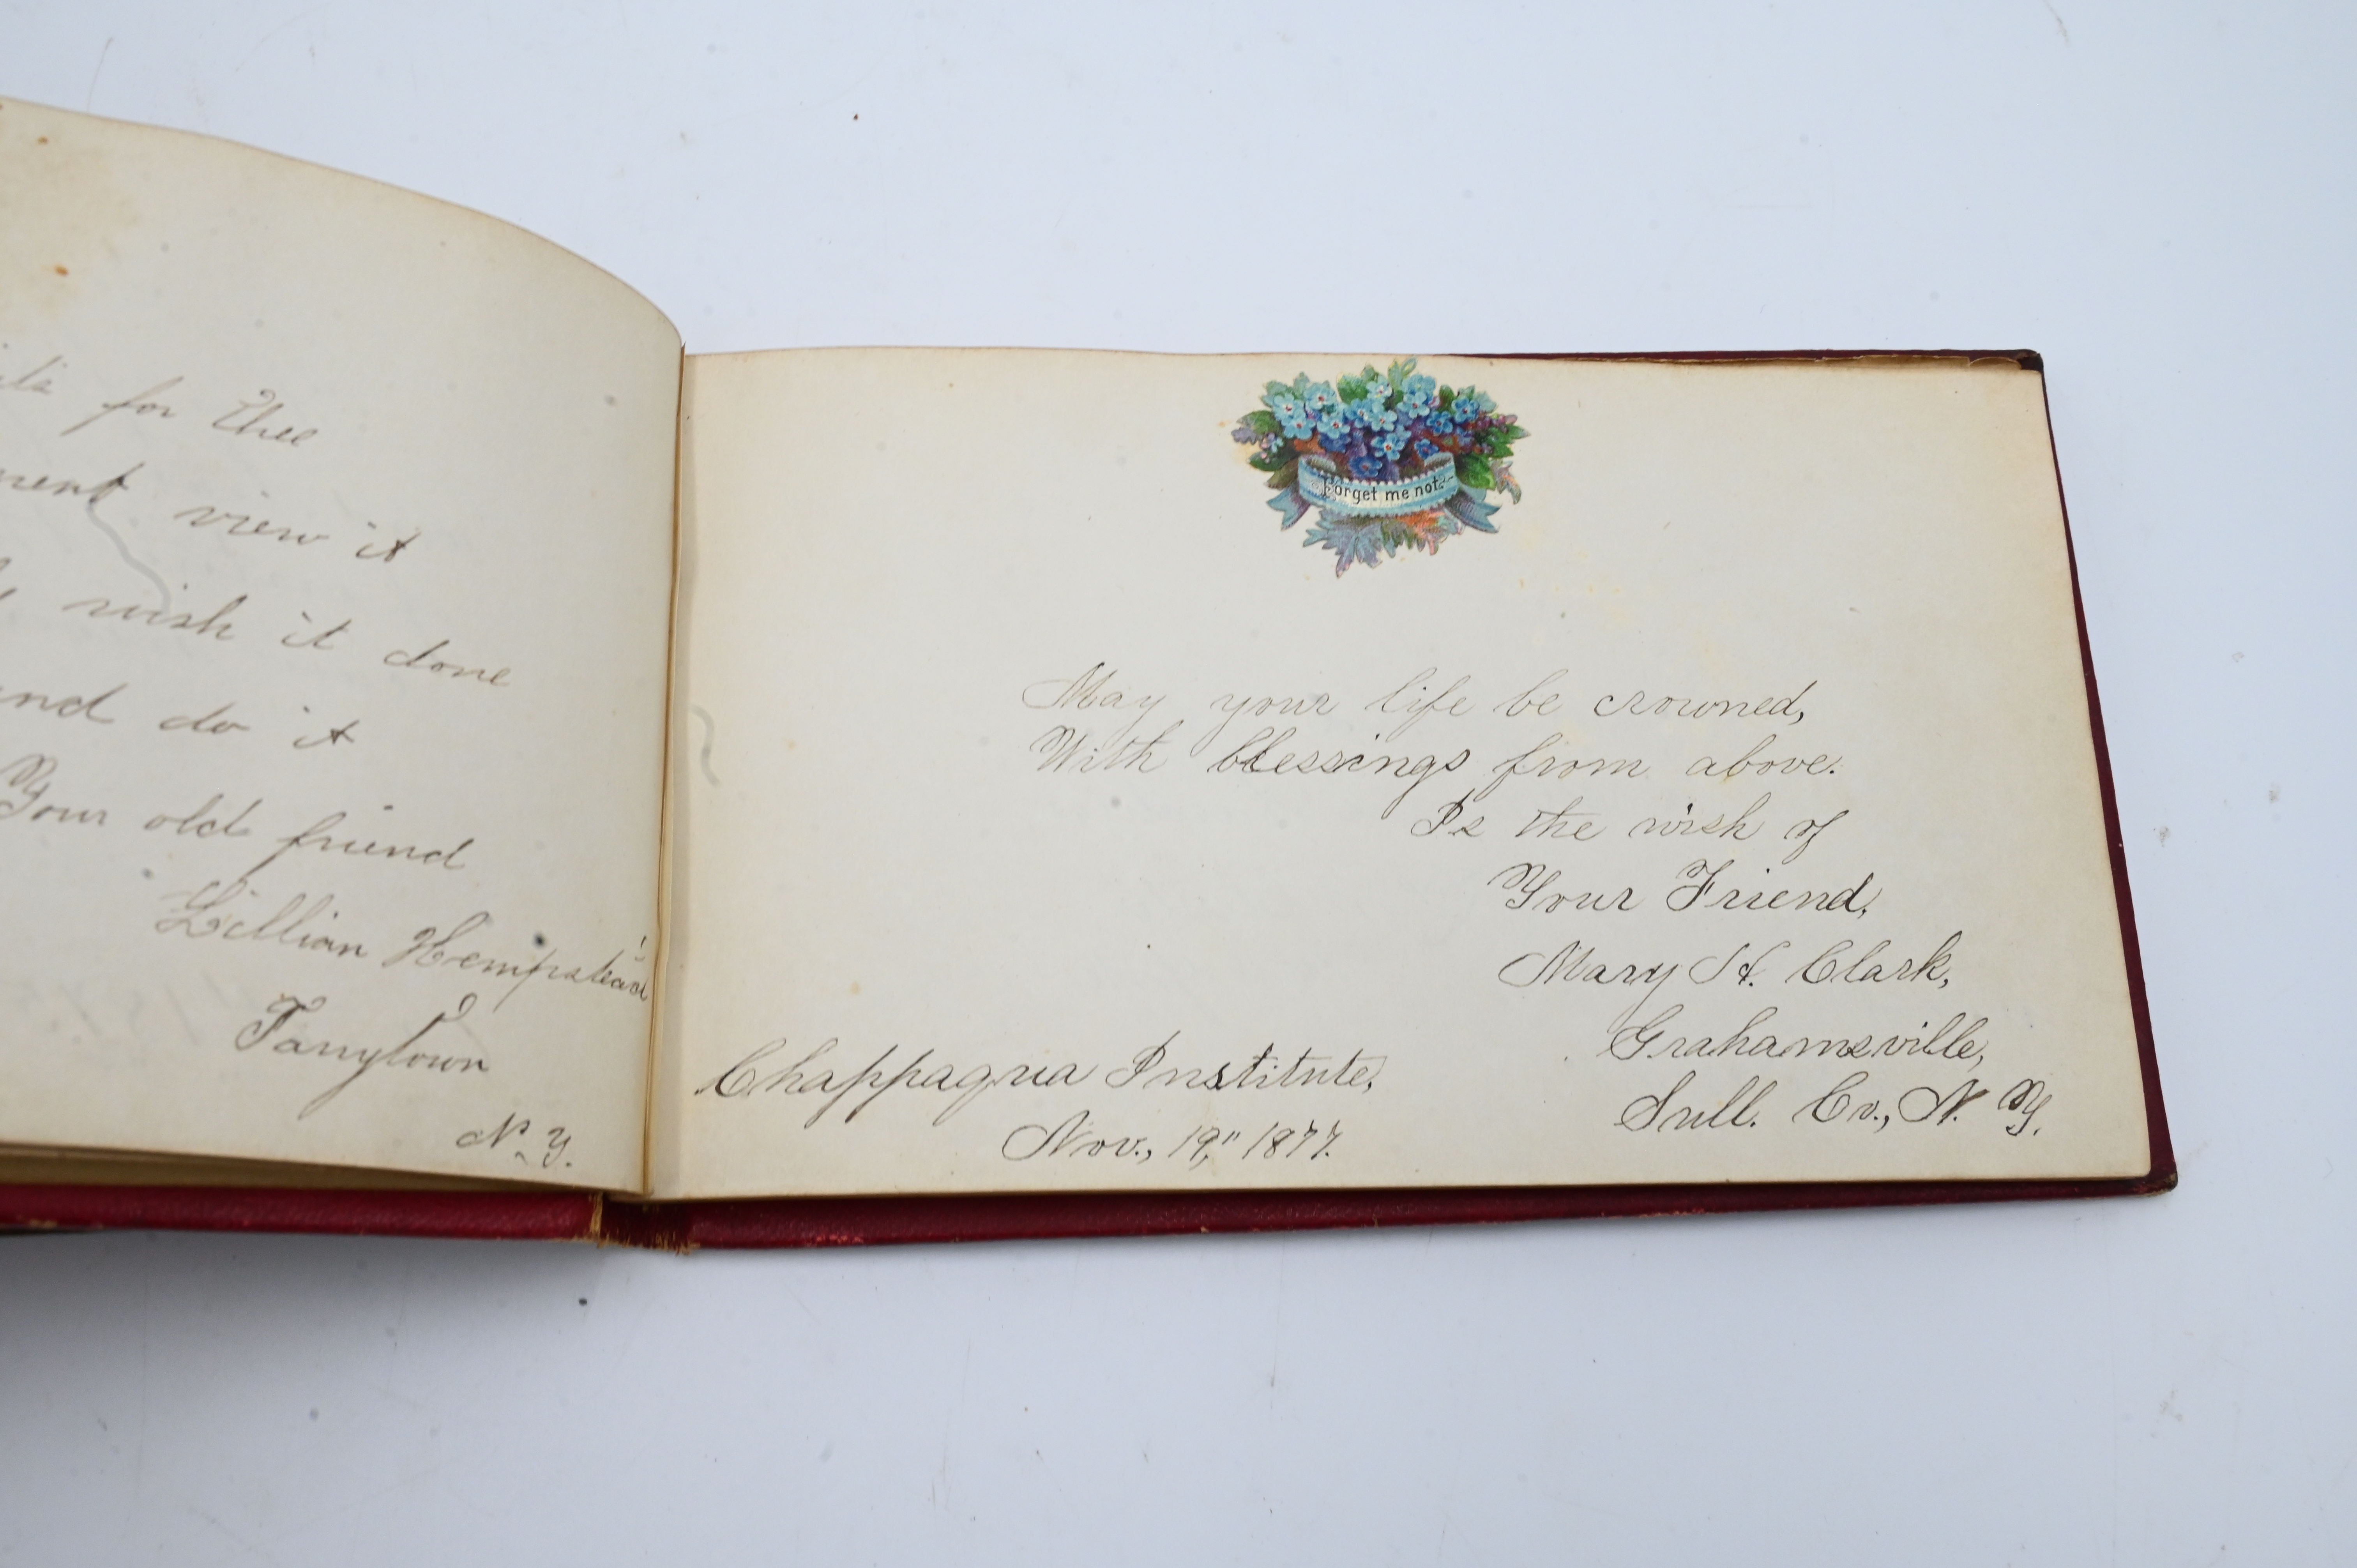 for Thee
view it
wish it done
and do it
Your old friend
Lillian Hempstead
Tarrytown
N.Y.
Forget me not
May your life be crowned,
With blessings from above.
Is the wish of
Your Friend,
Mary H. Clark,
Grahamsville,
Sull. Co., N. Y.
Chappaqua Institute,
Nov., 19," 1877.